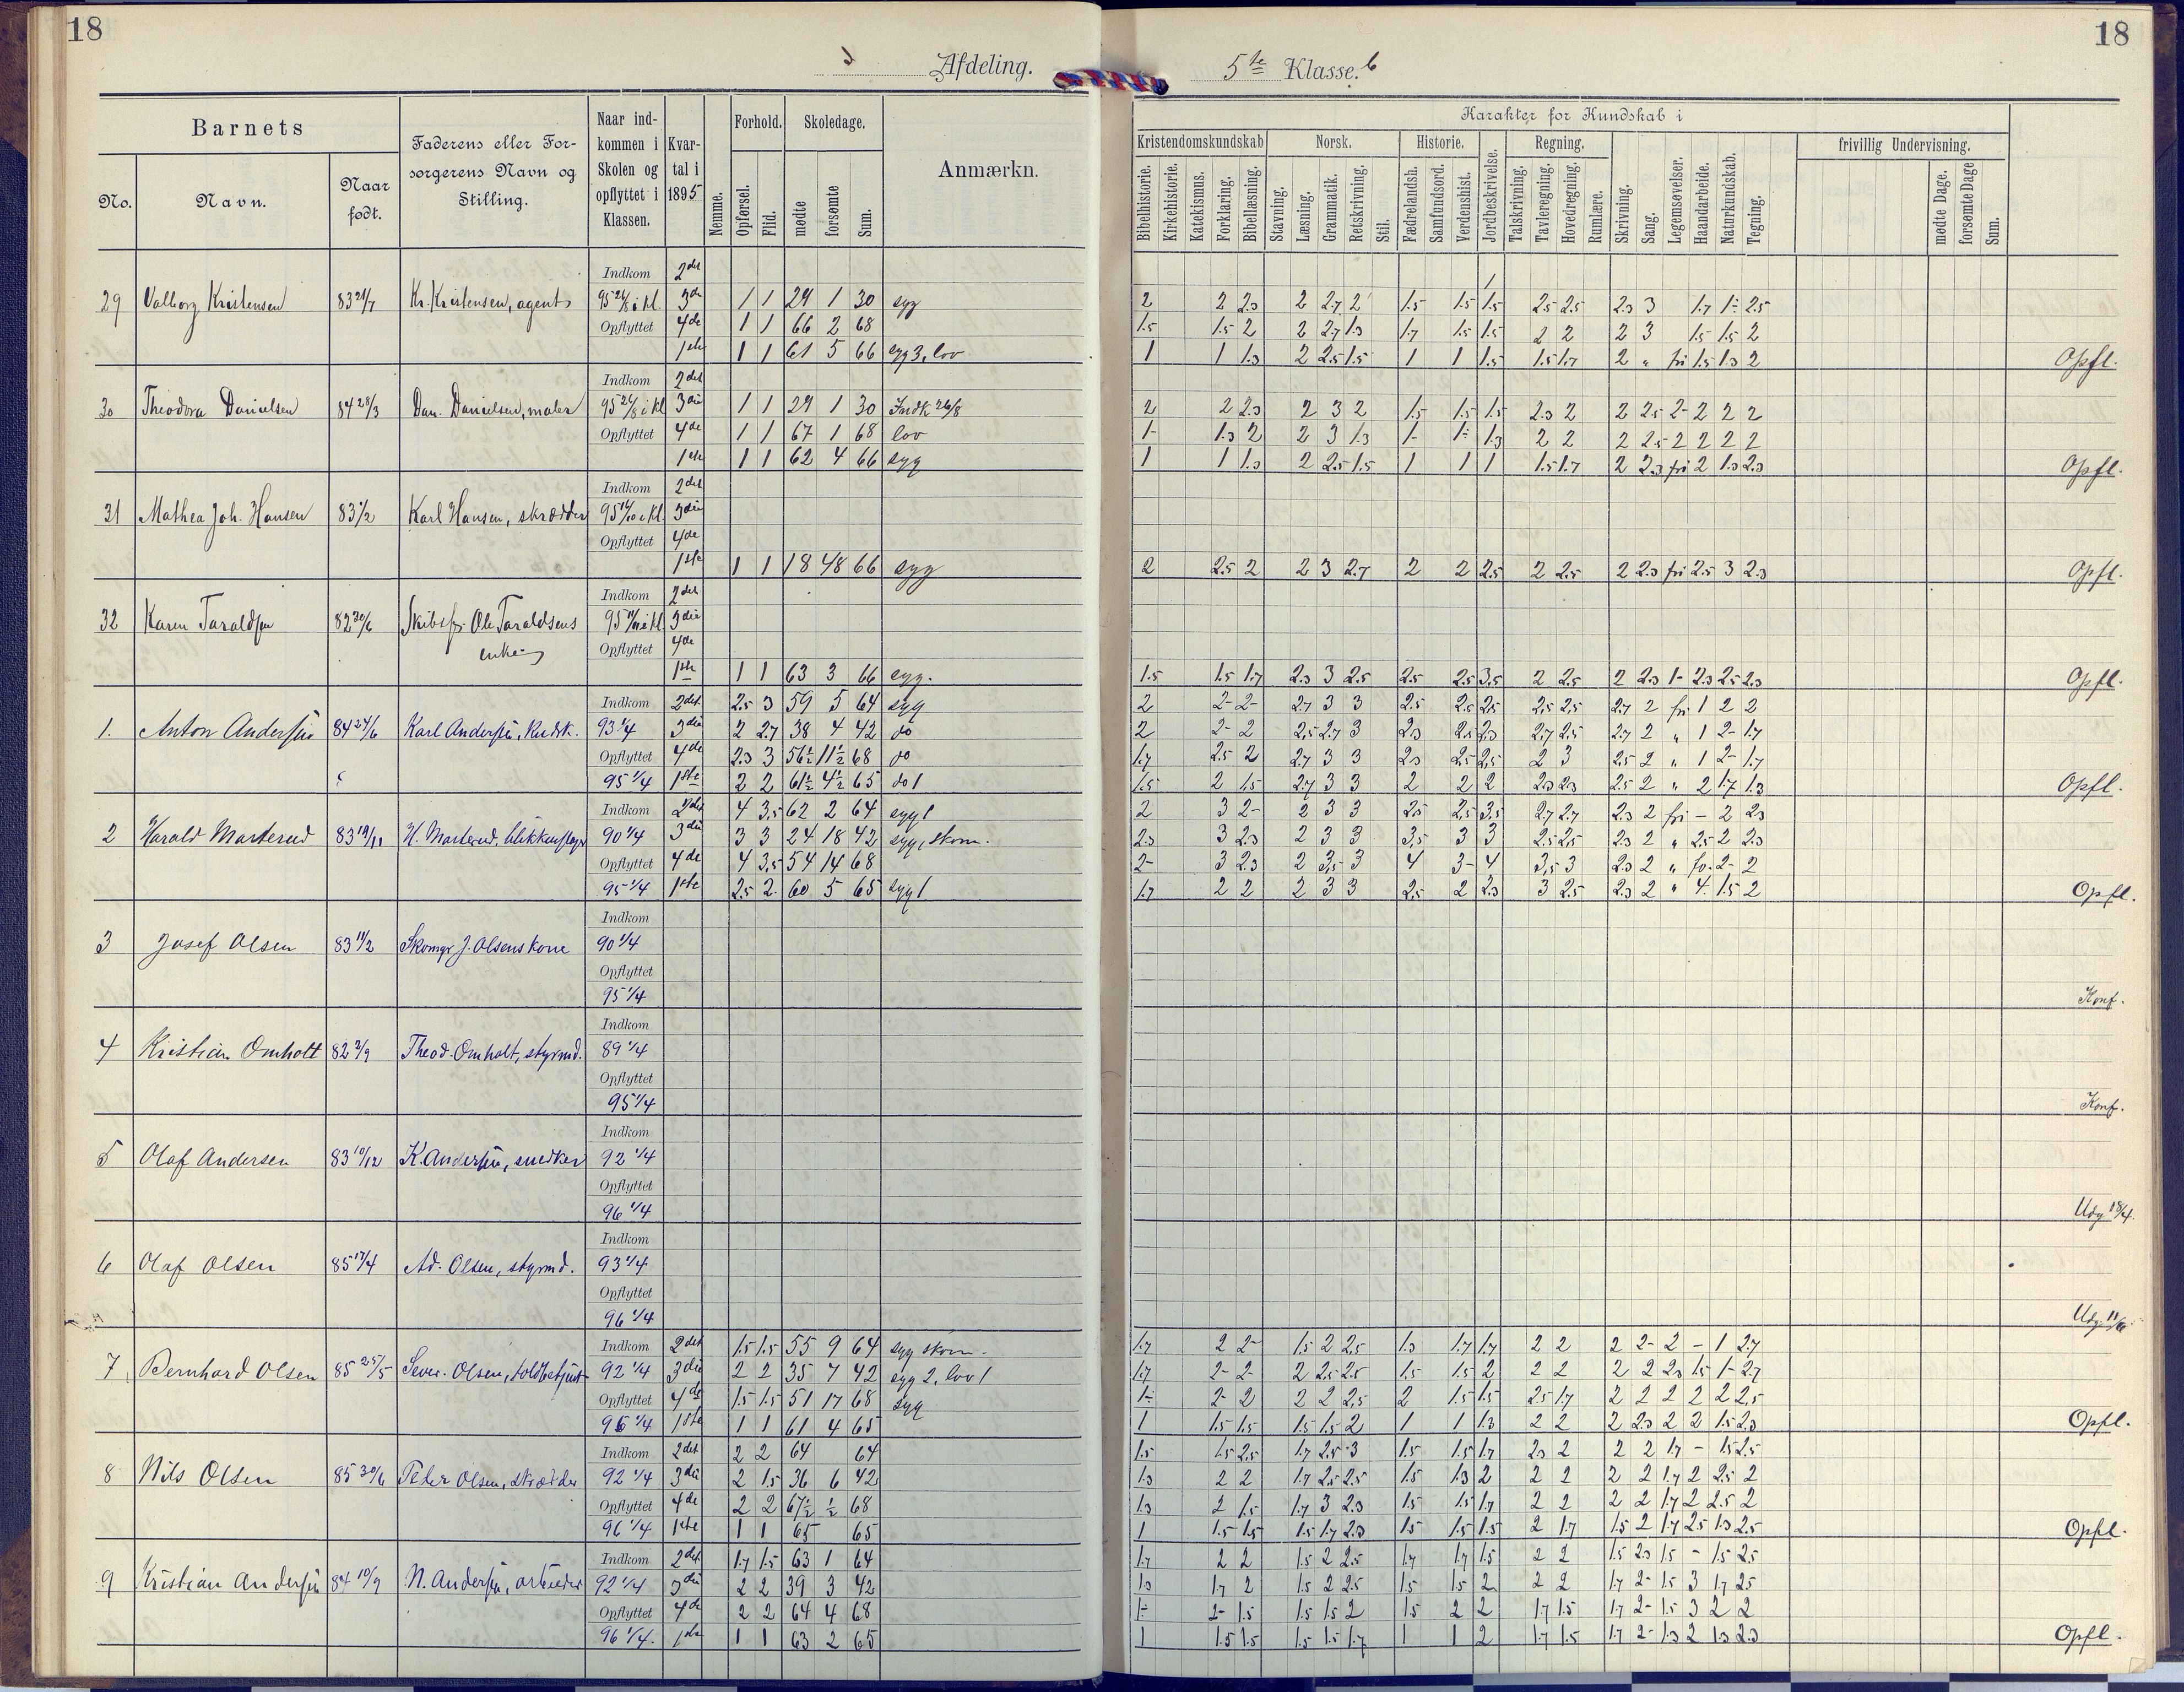 18
Afdeling.
5te Klasse. b
18
Barnets
No.
Navn.
Naar født.
Faderens eller Forsørgerens Navn og Stilling.
Naar indkommen i Skolen og opflyttet i Klassen.
Kvartal i 1895
Nemme.
Forhold.
Opførsel.
Flid.
Skoledage.
mødte
forsømte
Sum.
Anmærkn.
Karakter for Kundskab i
Kristendomskundskab
Bibelhistorie.
Kirkehistorie.
Katekismus.
Forklaring.
Bibellæsning.
Norsk.
Stavning.
Læsning.
Grammatik.
Retskrivning.
Stil.
Historie.
Fædrelandsh.
Samfundsord.
Verdenshist.
Jordbeskrivelse.
Regning.
Talskrivning.
Tavleregning.
Hovedregning.
Rumlære.
Skrivning.
Sang.
Legemsøvelser.
Haandarbeide.
Naturkundskab.
Tegning.
frivillig Undervisning.
mødte Dage.
forsømte Dage
Sum.
Indkom 2det
29 Valborg Kristensen Kr. Kristensen, agent 3die 1 1 29 1 30 syg 2 2 2.3 2 2.7 2 1.5 1.5 1.5 2.5 2.5 2.3 3
Opflyttet 4de 1 1 66 2 68 1.5 1.5 2 2 2.7 1.3 1.7 1.5 1.5 2 2 2 3 1.5 1.5 2
1ste 1 1 61 5 66 syg 3, lov 1 1 1.3 2 2.5 1.5 1 1 1.5 1.5 1.7 2 " fri 1.5 1.3 2 Opfl.
Indkom 2det
30 Theodora Danielsen 84 28/3 Dan. Danielsen, maler 95 26/8 i kl 3die 1 1 29 1 30 Indk 26/8 2 2 2.3 2 3 2 1.5 1.5 1.5 2.3 2 2 2.5 2- 2 2 2
Opflyttet 4de 1 1 67 1 68 lov 1- 1.3 2 2 3 1.3 1- 1.3 2 2 2 2.5 2 2 2 2
1ste 1 1 62 4 66 syg 1 1 1.3 2 2.5 1.5 1 1 1 1.5 1.7 2 2.3 fri 2 1.3 2.3 Opfl.
Indkom 2det
31 Mathea Joh. Hansen 83 Karl Hansen, skrædder 3die
Opflyttet 4de
1ste 1 1 18 48 66 syg 2 2.5 2 2 3 2.7 2 2 2.5 2 2.5 2 2.3 fri 2.5 3 2.3 Opfl.
Indkom 2det
32 Karen Taraldsen 82 30/6 Skibsf. Ole Taraldsens enke 3die
Opflyttet 4de
1ste 1 1 63 3 66 syg. 1.5 1.5 1.7 2.3 3 2.5 2.5 2.5 3.5 2 2.5 2 2.3 1- 2.3 2.5 2.3 Opfl.
Indkom 2det 2.5 3 59 5 64 syg 2 2- 2- 2.7 3 3 2.5 2.5 2.5 2.5 2.5 2.7 2 fri 1 2 2
1. Anton Andersen 84 24/6 Karl Andersen, 93 1/4 3die 2 2.7 38 4 42 do 2 2- 2 2.5 2.7 3 2.3 2.5 2.3 2.7 2.5 2.7 2 " 1 2- 1.7
Opflyttet 4de 2.3 3 56½ 11½ 68 do 1.7 2.5 2 2.7 3 3 2.3 2.5 2.5 2 3 2.5 2 " 1 2- 1.7
95 1/4 1ste 2 2 61½ 4½ 65 do 1 1.5 2 1.5 2.7 3 3 2 2 2 2.3 2.3 2.5 2 " 2 1.7 1.3 Opfl.
Indkom 2det 4 3.5 62 2 64 syg 1 2 3 2- 2 3 3 2.5 2.5 3.5 2.7 2.7 2.3 2 fri - 2 2.3
2 Harald Marterud 83 19/11 H. Marterud, blikkenslager 90 1/4 3die 3 3 24 18 42 syg, skom. 2.3 3 2.3 2 3 3 3.5 3 3 2.5 2.5 2.3 2 " 2.5 2 2.3
Opflyttet 4de 4 3.5 54 14 68 2- 3 2.3 2 3.5 3 4 3- 4 3.5 3 2.3 2 " fo. 2- 2
95 1/4 1ste 2.5 2. 60 5 65 syg 1 1.7 2 2 2 3 3 2.5 2 2.3 3 2.5 2.3 2 " 4. 1.5 2 Opfl.
Indkom
3 Josef Olsen 83 11/2 Skomgr J. Olsens kone 90 1/4
Opflyttet
95 1/4 Konf.
Indkom
4 Kristian Omholt 82 2/9 Theod. Omholt, styrmd. 89 1/4
Opflyttet
95 1/4 Konf.
Indkom
5 Olaf Andersen 83 10/12 K. Andersen, snedker 92 1/4
Opflyttet
96 1/4 Udg 18/4.
Indkom
6 Olaf Olsen 85 17/4 Ad. Olsen, styrmd. 93 1/4
Opflyttet
96 1/4 Udg.
Indkom 2det 1.5 1.5 55 9 64 syg skom. 1.7 2 2- 1.5 2 2.5 1.3 1.7 1.7 2 2 2 2- 2 - 1 2.7
7 Bernhard Olsen 85 25/5 Sever. Olsen, toldbetjent 92 1/4 3die 2 2 35 7 42 syg 2, lov 1 1.7 2- 2- 2 2.5 2.5 1.5 1.5 2 2 2 2 2 2.3 1.5 1- 2.7
Opflyttet 4de 1.5 1.5 51 17 68 syg 1- 2- 2 2 2 2.5 2 1.5 1.5 2.5 1.7 2 2 2 2 2 2.5
96 1/4 1ste 1 1 61 4 65 1 1.5 1.5 1.5 1.5 2 1 1 1.3 2 2 2 2.3 2 2 1.5 2.3 Opfl.
Indkom 2det 2 2 64 64 1.5 1.5 2.5 1.7 2.5 3 1.5 1.5 1.7 2.3 2 2 2 1.7 - 1.5 2.5
8 Nils Olsen 85 30/6 Peter Olsen, skrædder 92 1/4 3die 2 1.5 36 6 42 1.3 2 2 1.7 2.5 2.5 1.5 1.3 2 2 2 2 2 1.7 2 2.5 2
Opflyttet 4de 2 2 67½ ½ 68 1.3 2 1.5 1.7 3 2.3 1.5 1.5 1.7 2 2 2 2 1.7 2 2.5 2
96 1/4 1ste 1 1 65 65 1 1.5 1.5 1.5 1.7 2.3 1.5 1.5 1.5 2 1.7 1.5 2 1.7 2.5 1.3 2.5 Opfl.
Indkom 2det 1.7 1.5 63 1 64 1.7 2 2 1.5 2 2.5 1.7 1.7 1.5 2 2 1.5 2.3 1.5 - 1.5 2.5
9 Kristian Andersen 84 10/9 N. Andersen, arbeider 92 1/4 3die 2 2 39 3 42 1.3 1.7 2 1.5 2 2.5 1.5 1.5 2 2 2 1.7 2- 1.5 3 1.7 2.5
Opflyttet 4de 2 2 64 4 68 1- 2- 1.5 1.5 1.5 2 1.5 2 2 1.7 1.5 1.7 2- 1.5 3 2 2
96 1/4. 1ste 1 1 63 2 65 1 1.5 1.5 1.5 1.5 1.7 1 1 2 1.7 1.5 1.7 2- 1.3 2 1.3 2.3 Opfl.